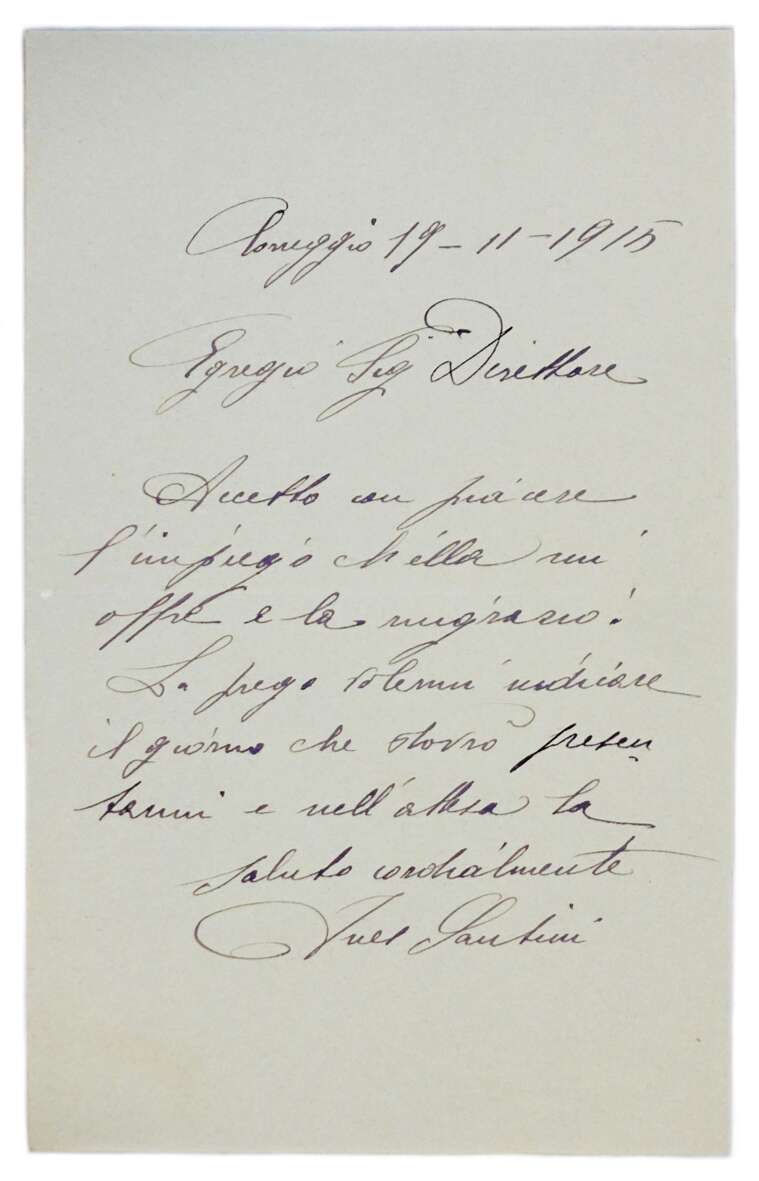 Correggio 19-11-1915
Egregio Sig. Direttore
Accetto con piacere
l'impiego ch'ella mi
offre e la ringrazio.
La prego volermi indicare
il giorno che dovrò presen-
tarmi e nell'attesa la
saluto cordialmente
Ines Santini